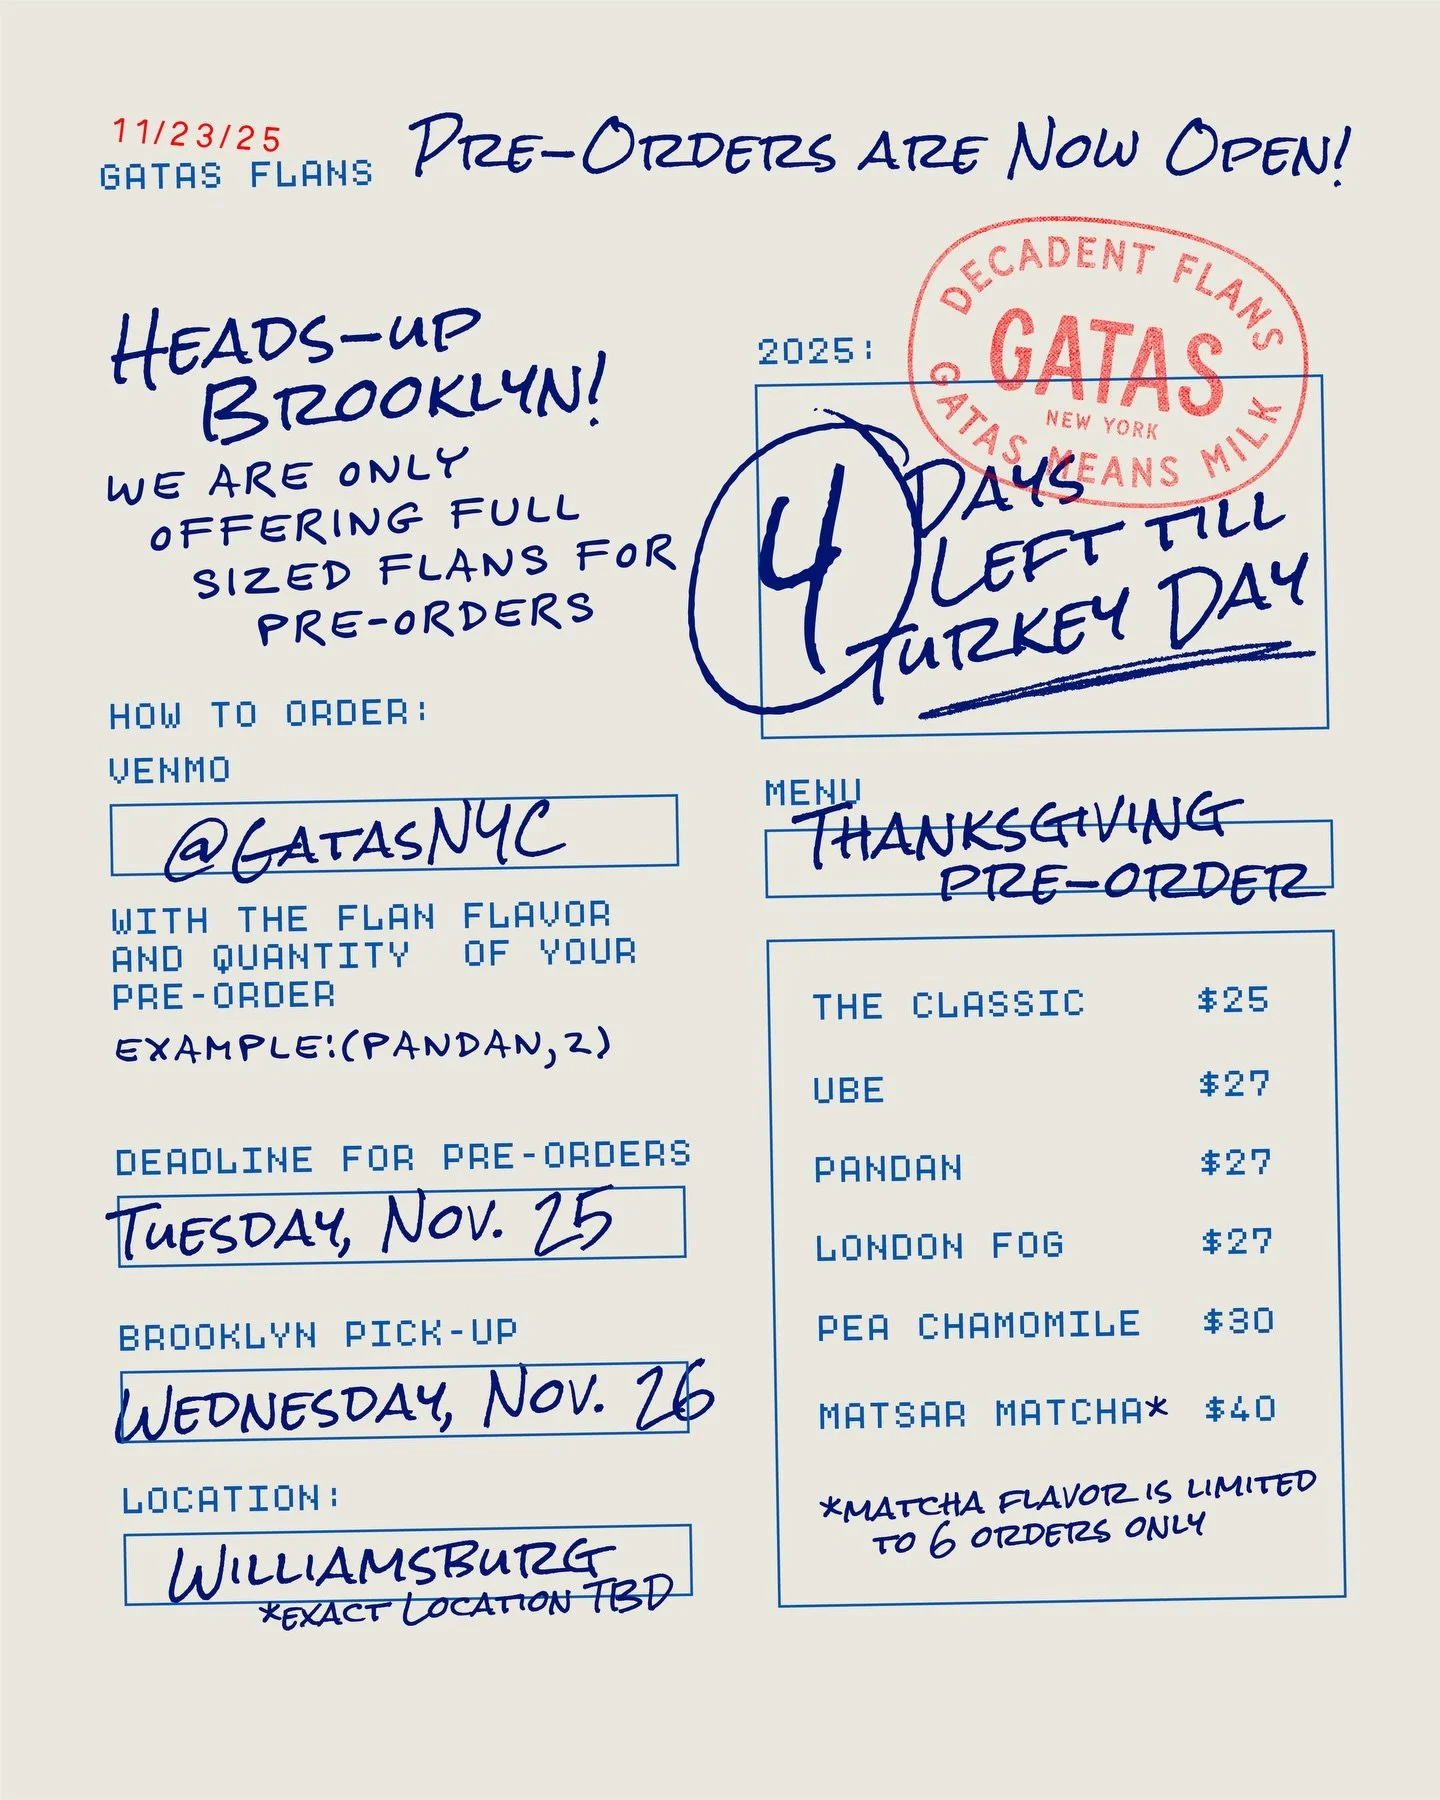 11/23/25
GATAS FLANS
PRE-ORDERS ARE NOW OPEN!
DECADENT FLANS
GATAS
NEW YORK
GATAS MEANS MILK
HEADS-UP
BROOKLYN!
WE ARE ONLY
OFFERING FULL
SIZED FLANS FOR
PRE-ORDERS
HOW TO ORDER:
VENMO
@GATASNYC
WITH THE FLAN FLAVOR
AND QUANTITY OF YOUR
PRE-ORDER
EXAMPLE:(PANDAN,2)
DEADLINE FOR PRE-ORDERS
TUESDAY, NOV. 25
BROOKLYN PICK-UP
WEDNESDAY, NOV. 26
LOCATION:
WILLIAMSBURG
*EXACT LOCATION TBD
2025:
4 DAYS
LEFT TILL
TURKEY DAY
MENU
THANKSGIVING
PRE-ORDER
THE CLASSIC $25
UBE $27
PANDAN $27
LONDON FOG $27
PEA CHAMOMILE $30
MATSAR MATCHA* $40
*MATCHA FLAVOR IS LIMITED
TO 6 ORDERS ONLY